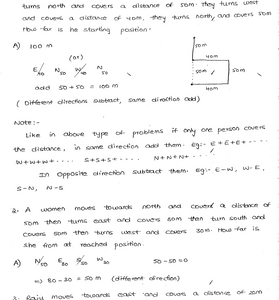 turns north and covers a distance of 50m. they turns west
and covers a distance of 40m, they turns north, and covers 50m
How far is he starting position.
A) 100 m
50m
(or)
40m
E/40 N50 W/40 N50
50m
50m
add 50+50 = 100m
40m
( Different directions subtract, same direction add)
Note:-
Like in above type of problems if only one person covers
the distance, in same direction add them. eg:- E+E+E+....
W+W+W+.... S+S+S+.... N+N+N+....
In opposite direction subtract them. eg:- E-W, W-E,
S-N, N-S
2. A women moves towards north and covers a distance of
50m then turns east and covers 80m then turn south and
covers 50m then turns west and covers 30m. How far is
she from at reached position.
A) N/50 E80 S/50 W30 50-50=0
⇒ 80-30 = 50m (different direction)
3. Raju moves towards east and covers a distance of 20m